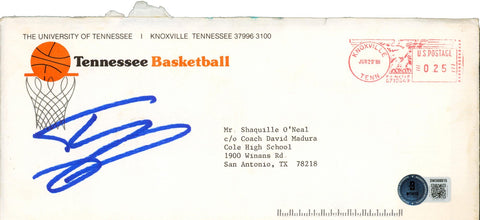 THE UNIVERSITY OF TENNESSEE | KNOXVILLE TENNESSEE 37996 3100
Tennessee Basketball
KNOXVILLE
TENN.
U.S. POSTAGE
025
Mr. Shaquille O'Neal
c/o Coach David Madura
Cole High School
1900 Winans Rd
San Antonio, TX 78218